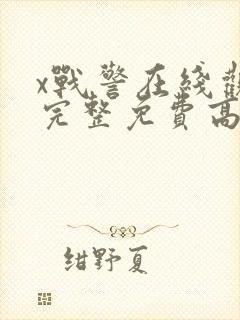 x戰警在綫觀
完整免費高
紺野夏